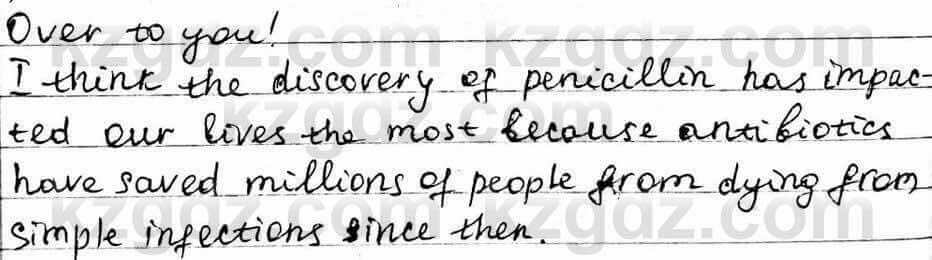 Over to you!
I think the discovery of penicillin has impac-
ted our lives the most because antibiotics
have saved millions of people from dying from
simple infections since then.
kzgdz.com kzgdz.com
kzgdz.com
kzgdz.com kzgdz.com